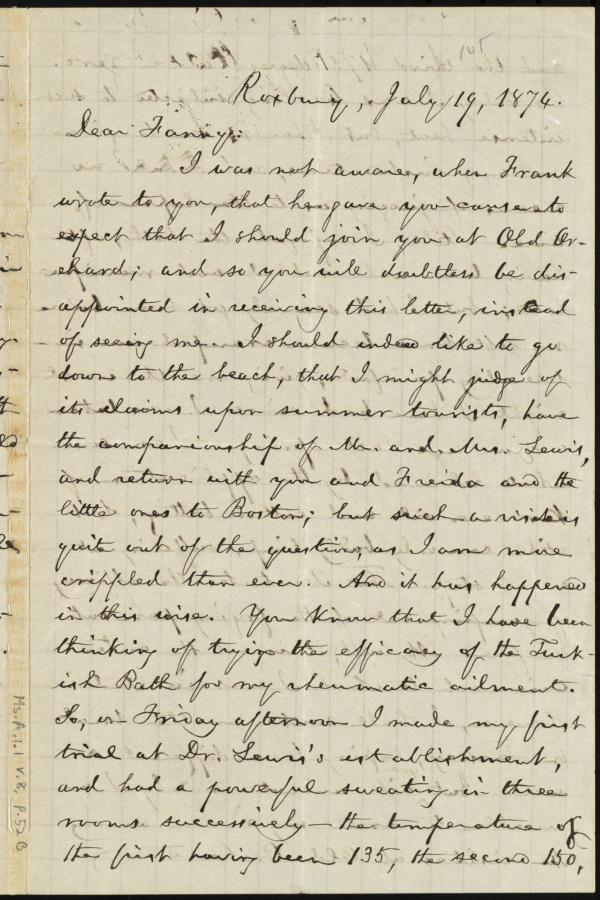 145
Roxbury, July 19, 1874.
Dear Fanny:
I was not aware, when Frank
wrote to you, that he gave you cause to
expect that I should join you at Old Or-
chard; and so you will doubtless be dis-
appointed in receiving this letter, instead
of seeing me. I should indeed like to go
down to the beach, that I might judge of
its claims upon summer tourists, have
the companionship of Mr. and Mrs. Lewis,
and return with you and Freida and the
little ones to Boston; but such a visit is
quite out of the question, as I am more
crippled than ever. And it has happened
in this wise. You know that I have been
thinking of trying the efficacy of the Turk-
ish Bath for my rheumatic ailment.
So, on Friday afternoon I made my first
trial at Dr. Lewis's establishment,
and had a powerful sweating in three
rooms successively—the temperature of
the first having been 135, the second 150,
Ms.A.1.1 V.8, P.52B